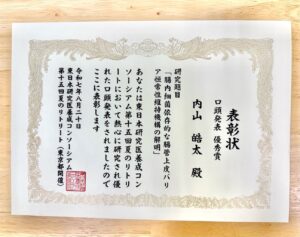 表彰状
口頭発表 優秀賞
内山 皓太 殿
研究題目
「腸内細菌依存的な腸管上皮バリ
ア恒常性維持機構の解明」
あなたは東日本研究医養成コン
ソーシアム第十五回夏のリトリ
ートにおいて熱心に研究され優
れた口頭発表をされましたので
ここに表彰します
令和七年八月二十日
東日本研究医養成コンソーシアム
第十五回夏のリトリート（東京都開催）